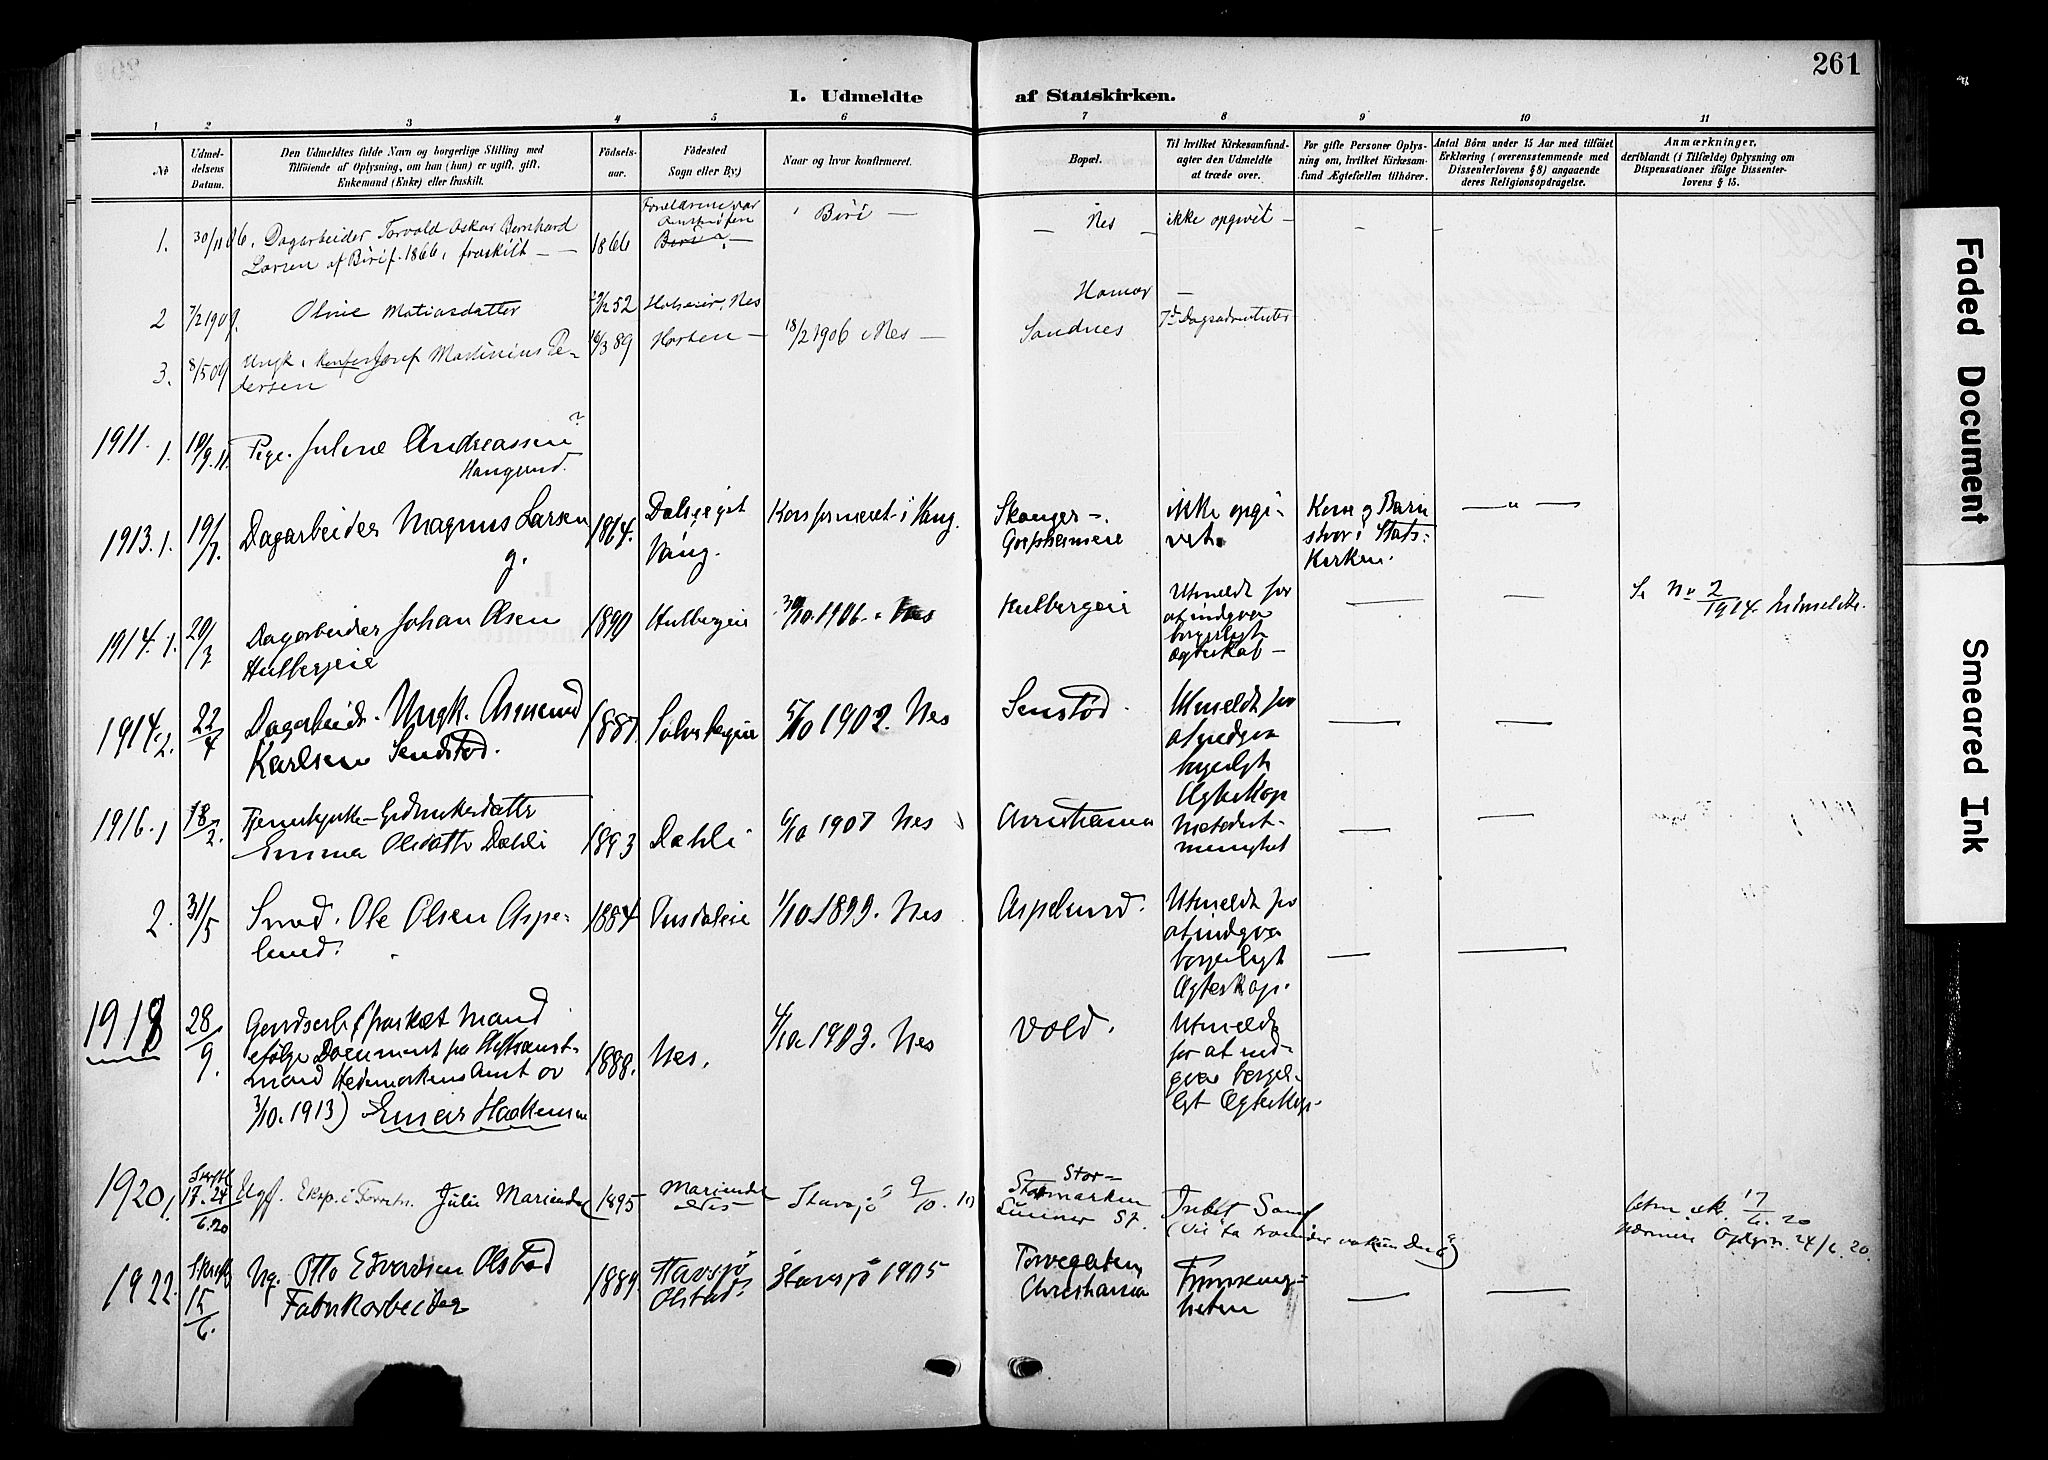 261
I. Udmeldte af Statskirken.
1 2 3 4 5 6 7 8 9 10 11
No
Udmel-
delsens
Datum.
Den Udmeldtes fulde Navn og borgerlige Stilling med
Tilföiende af Oplysning, om han (hun) er ugift, gift,
Enkemand (Enke) eller fraskilt.
Födsels-
aar.
Födested
Sogn eller By.)
Naar og hvor konfirmeret.
Bopæl.
Til hvilket Kirkesamfund-
agter den Udmeldte
at træde over.
For gifte Personer Oplys-
ning om, hvilket Kirkesam-
fund Ægtefællen tilhörer.
Antal Börn under 15 Aar med tilföiet
Erklæring (overensstemmende med
Dissenterlovens § 8) angaaende
deres Religionsopdragelse.
Anmærkninger,
deriblandt (i Tilfælde) Oplysning om
Dispensationer ifölge Dissenter-
lovens § 15.
1. 30/11 06. Dagarbeider Torvald Oskar Bernhard
Larsen af Biri f. 1866, fraskilt —
1866
Biri —
Biri —
— Nes —
ikke opgivit —
2 7/2 1909. Oline Matiasdatter
52
Nes
Hamar
—
3. 8/5 09 Ungk. Josef Martinius Pe-
dersen
16/3 89
Horten —
18/2 1906 i Nes —
Sandnes
7de Dagsadventister
1911. 1. 19/9.11. Pige. Juline Andreassen ?
Haugsund.
1913. 1. 19/7. Dagarbeider Magnus Larsen
g.
1864.
Vang.
Konfirmeret i Vang.
Skanger -.
ikke opgi-
vet.
Kone og Barn
staar i Stats-
Kirken.
— " —
1914. 1. 20/3 Dagarbeider Johan Olsen
Hulbergeie
1890
Hulbergeie
30/10. 1906. Nes
Hulbergeie
Utmeldt for
at indgaa
borgerligt
Ægteskab —
—
—
Se No 2/1914 Udmeldte.
1914. 2. 22/4 Dagarbeid. Ungk. Amund
Karlsen Sendstad.
1887.
Sølvsbergeie
5/10 1902. Nes
Senstad.
Utmeldt for
at indgaa
borgerligt
Ægteskap
—
—
1916. 1 18/2. Tjenestepike - Gårdbrukerdatter
Emma Olsdatter Dæhli
1893
Dæhli
6/10 1907 Nes
Christiania
Metodist-
menighet
—
—
2. 31/5 Smed. Ole Olsen Aspe-
lund.
1884
1/10 1899. Nes
Aspelund.
Utmeldt for
at indgaa
borgerligt
Ægteskap.
—
—
1918 28/9. Gaardsarb. (fraskilt mand
ifølge Document fra Stiftsamt-
mand Hedemarkens Amt av
3/10. 1913) Einar Haakensen
1888.
Nes.
4/10 1903. Nes
Vold.
Utmeldt
for at ind-
gaa borger-
ligt Ægteskap.
1920. 1. Skriftl
17.24/6.20
Ugf. Eksp. i Forretn. Julie Mariendal
1895
Mariendal
Nes
Stavsjø 9/10. 10
Stor-
Stormarken
(Vil ta
17/6. 20
nærmere Opgivn. 24/6. 20.
1922. Skriftl
15/6.
Ug. Otto Edvardsen Olstad
Fabrikarbeider
1889.
Stavsjø
Olstad.
Stavsjø 1905
Torvegaten,
Christiania
Frimenig-
heten
—
—
Faded Document
Smeared Ink